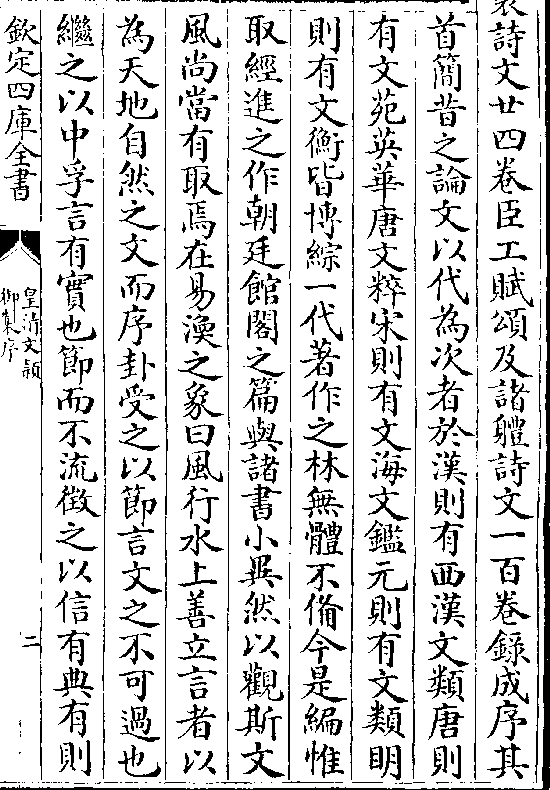 詩文廿四卷臣工賦頌及諸體詩文一百卷錄成序其
首簡昔之論文以代為次者於漢則有西漢文類唐則
有文苑英華唐文粹宋則有文海文鑑元則有文類明
則有文衡皆博綜一代著作之林無體不備今是編惟
取經進之作朝廷館閣之篇與諸書小異然以觀斯文
風尚當有取焉在易渙之象曰風行水上善立言者以
為天地自然之文而序卦受之以節言文之不可過也
繼之以中孚言有實也節而不流徵之以信有典有則
欽定四庫全書
皇清文穎
御集序
二